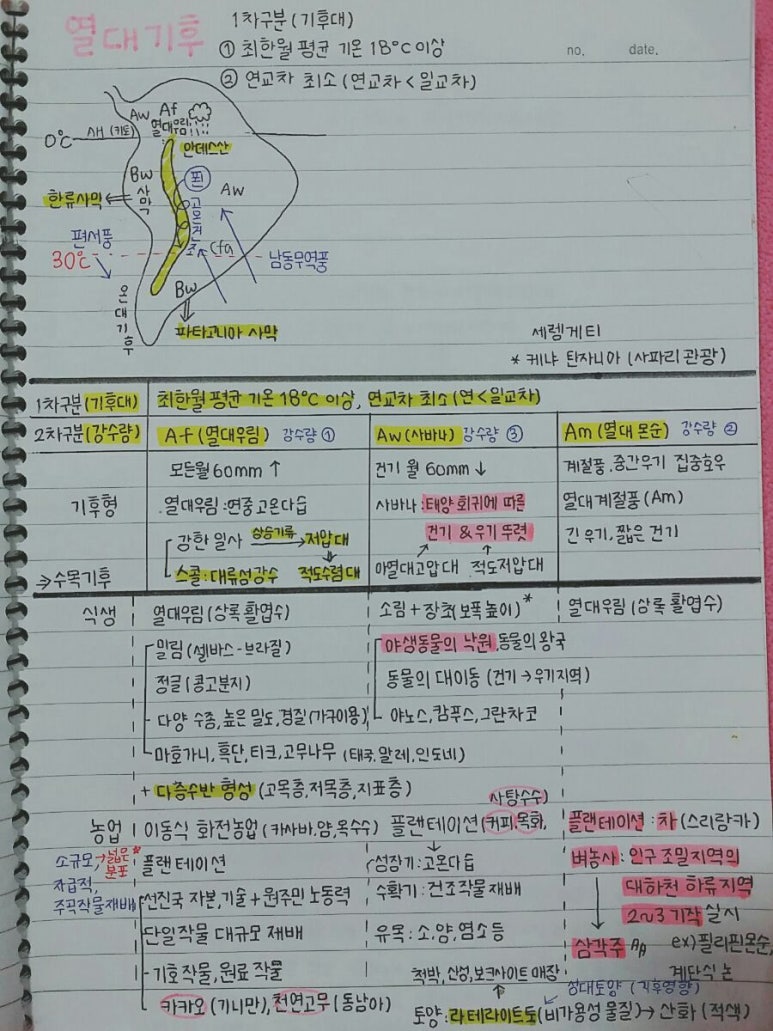 열대기후
1차구분(기후대)
① 최한월 평균 기온 18°C 이상
② 연교차 최소 (연교차 < 일교차)
no. date.
Aw Af
열대우림
0°C AH (키토)
안데스산
Bw
사막
한류사막
푄
고온건조
Aw
편서풍
30°C
Cfa
남동무역풍
온대기후
Bw
파타고니아 사막
세렝게티
* 케냐 탄자니아 (사파리 관광)
1차구분(기후대) 최한월 평균 기온 18°C 이상, 연교차 최소 (연<일교차)
2차구분(강수량) Af (열대우림) 강수량 ① Aw (사바나) 강수량 ③ Am (열대 몬순) 강수량 ②
모든월 60mm ↑ 건기 월 60mm ↓ 계절풍, 중간우기 집중호우
기후형 열대우림 : 연중 고온다습 사바나 : 태양 회귀에 따른 열대계절풍 (Am)
강한 일사 상승기류→ 저압대 건기 & 우기 뚜렷 긴 우기, 짧은 건기
⇒수목기후 스콜 : 대류성강수 적도수렴대 아열대고압대 적도저압대
식생 열대우림 (상록 활엽수) 소림 + 장초(보폭 높이)* 열대우림 (상록 활엽수)
밀림 (셀바스 - 브라질) 야생동물의 낙원, 동물의 왕국
정글 (콩고분지) 동물의 대이동 (건기 → 우기지역)
다양 수종, 높은 밀도, 경질 (가구이용) 야노스, 캄푸스, 그란차코
마호가니, 흑단, 티크, 고무나무 (태국, 말레, 인도네)
+ 다층수반 형성 (고목층, 저목층, 지표층)
사탕수수
농업 이동식 화전농업 (카사바, 얌, 옥수수) 플랜테이션 (커피, 목화, 플랜테이션 : 차 (스리랑카)
소규모, →넓은 분포* 플랜테이션 성장기 : 고온다습 벼농사 : 인구 조밀지역의
자급적, 주곡작물재배 선진국 자본, 기술 + 원주민 노동력 수확기 : 건조작물 재배 대하천 하류지역
단일작물 대규모 재배 유목 : 소, 양, 염소 등 2~3기작 실시
기호작물, 원료 작물 척박, 산성, 보크사이트 매장 삼각주 ex) 필리핀몬순,
계단식 논
카카오 (기니만), 천연고무 (동남아) 성대토양 (기후영향)
토양 : 라테라이트토 (비가용성 물질) → 산화 (적색)